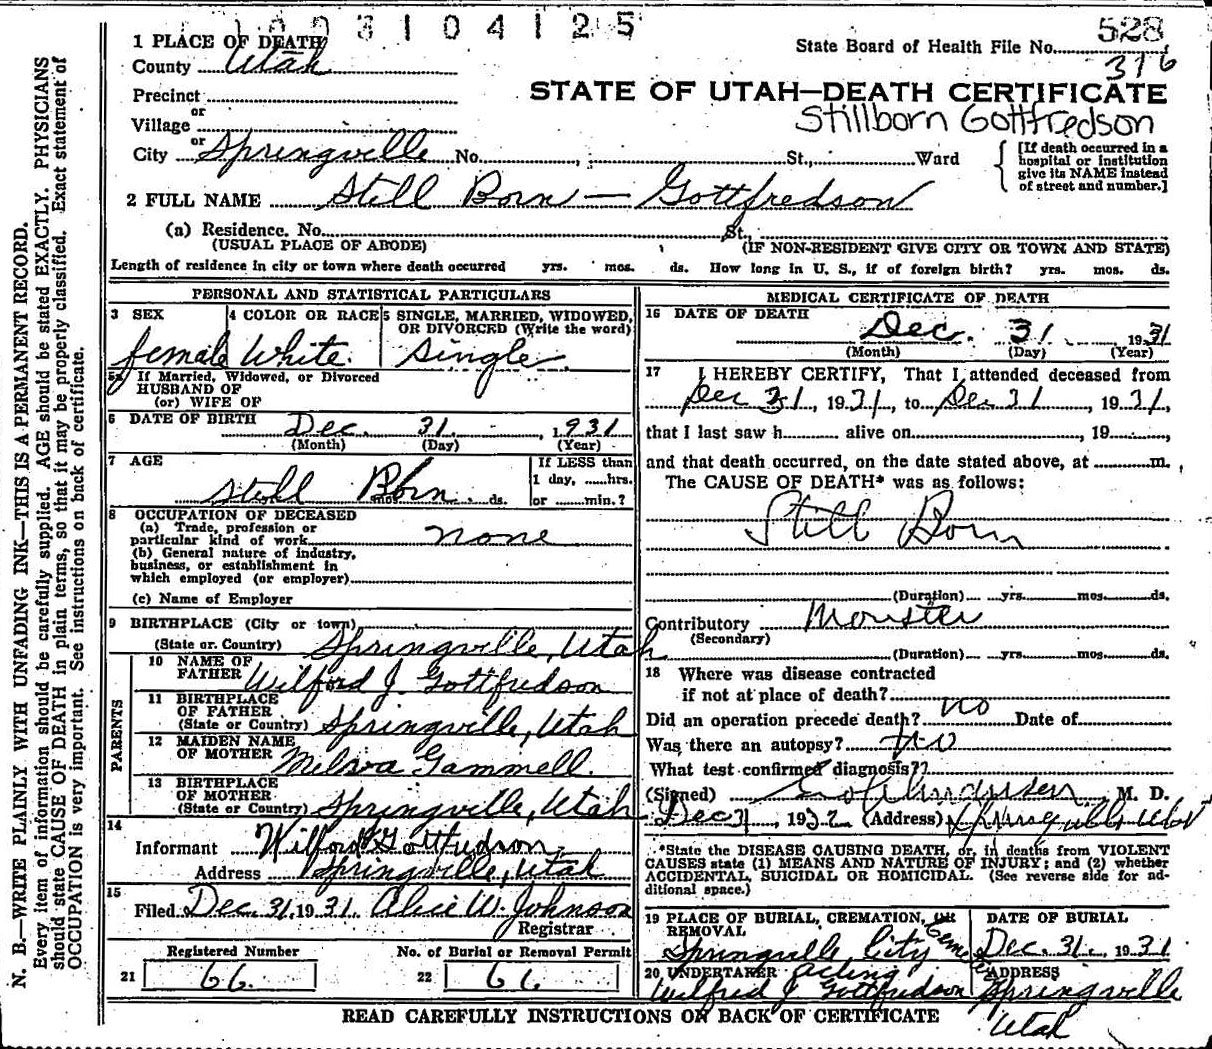 3104125
528
State Board of Health File No.
316
1 PLACE OF DEATH
County Utah
STATE OF UTAH—DEATH CERTIFICATE
Precinct
or
Village
Stillborn Gottfredson
or
City Springville No. , St., Ward
[If death occurred in a
hospital or institution
give its NAME instead
of street and number.]
2 FULL NAME Still Born — Gottfredson
(a) Residence. No. St.
(USUAL PLACE OF ABODE) (IF NON-RESIDENT GIVE CITY OR TOWN AND STATE)
Length of residence in city or town where death occurred yrs. mos. ds. How long in U. S., if of foreign birth? yrs. mos. ds.
PERSONAL AND STATISTICAL PARTICULARS
3 SEX 4 COLOR OR RACE 5 SINGLE, MARRIED, WIDOWED,
OR DIVORCED (Write the word)
female White. Single
5a If Married, Widowed, or Divorced
HUSBAND OF
(or) WIFE OF
6 DATE OF BIRTH Dec. 31. , 1931
(Month) (Day) (Year)
7 AGE If LESS than
1 day, hrs.
Still Born. ds. or min.?
8 OCCUPATION OF DECEASED
(a) Trade, profession or
particular kind of work none
(b) General nature of industry,
business, or establishment in
which employed (or employer)
(c) Name of Employer
9 BIRTHPLACE (City or town)
(State or Country) Springville, Utah
PARENTS
10 NAME OF
FATHER Wilford J Gottfredson
11 BIRTHPLACE
OF FATHER
(State or Country) Springville, Utah
12 MAIDEN NAME
OF MOTHER Melva Gammell.
13 BIRTHPLACE
OF MOTHER
(State or Country) Springville, Utah
14
Informant Wilford Gottfredson
Address Springville, Utah
15
Filed Dec 31, 1931. Alice W. Johnson
Registrar
Registered Number No. of Burial or Removal Permit
21 66. 22 66
MEDICAL CERTIFICATE OF DEATH
16 DATE OF DEATH
Dec. 31 , 1931
(Month) (Day) (Year)
17 I HEREBY CERTIFY, That I attended deceased from
Dec 31, 1931, to Dec 31, 1931,
that I last saw h alive on , 19 ,
and that death occurred, on the date stated above, at m.
The CAUSE OF DEATH* was as follows:
Still Born
(Duration) yrs. mos. ds.
Contributory Monster
(Secondary)
(Duration) yrs. mos. ds.
18 Where was disease contracted
if not at place of death?
Did an operation precede death? no Date of
Was there an autopsy? no
What test confirmed diagnosis??
(Signed) M. D.
Dec 31, 1932 (Address) Springville Utah
*State the DISEASE CAUSING DEATH, or, in deaths from VIOLENT
CAUSES state (1) MEANS AND NATURE OF INJURY; and (2) whether
ACCIDENTAL, SUICIDAL OR HOMICIDAL. (See reverse side for ad-
ditional space.)
19 PLACE OF BURIAL, CREMATION, OR DATE OF BURIAL
REMOVAL
Springville City Cemetery Dec. 31. 1931
20 UNDERTAKER acting ADDRESS
Wilfred J Gottfredson Springville
Utah
READ CAREFULLY INSTRUCTIONS ON BACK OF CERTIFICATE
N. B.—WRITE PLAINLY WITH UNFADING INK—THIS IS A PERMANENT RECORD.
Every item of information should be carefully supplied. AGE should be stated EXACTLY. PHYSICIANS
should state CAUSE OF DEATH in plain terms, so that it may be properly classified. Exact statement of
OCCUPATION is very important. See instructions on back of certificate.